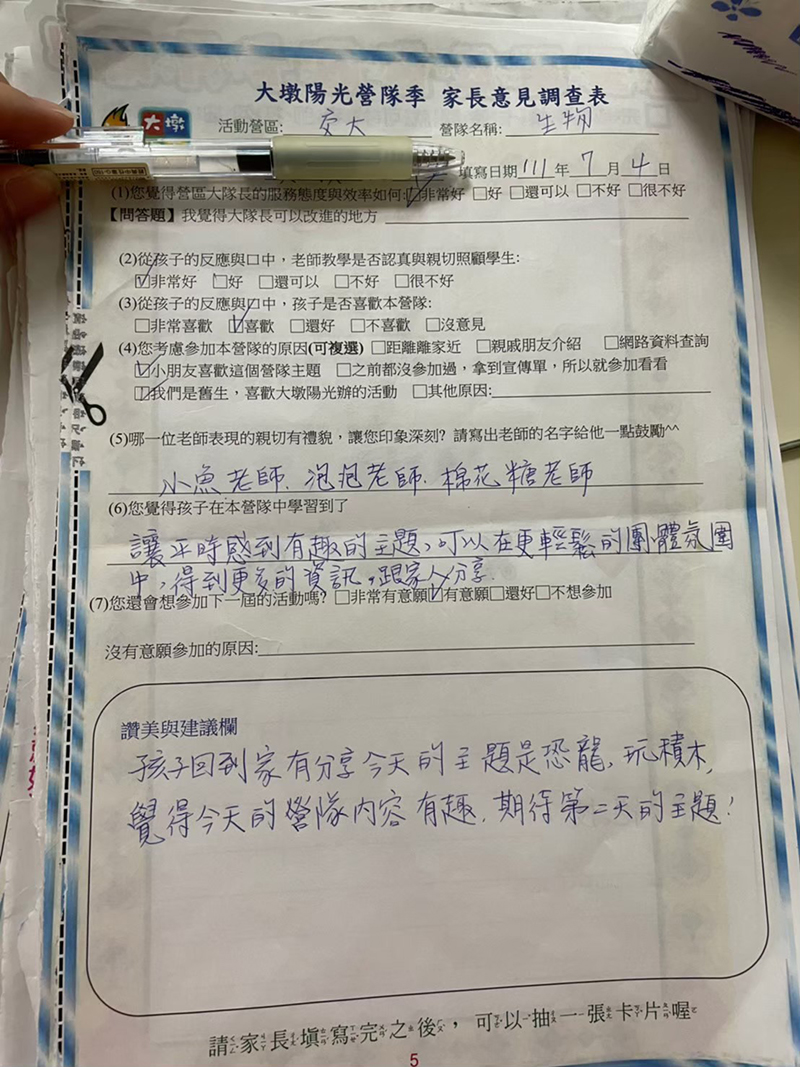 大墩陽光營隊季 家長意見調查表
大墩
活動營區: 交大 營隊名稱: 生物
填寫日期 111 年 7 月 4 日
(1)您覺得營區大隊長的服務態度與效率如何:☑非常好 □好 □還可以 □不好 □很不好
【問答題】我覺得大隊長可以改進的地方
(2)從孩子的反應與口中，老師教學是否認真與親切照顧學生:
☑非常好 □好 □還可以 □不好 □很不好
(3)從孩子的反應與口中，孩子是否喜歡本營隊:
□非常喜歡 ☑喜歡 □還好 □不喜歡 □沒意見
(4)您考慮參加本營隊的原因(可複選) □距離離家近 □親戚朋友介紹 □網路資料查詢
☑小朋友喜歡這個營隊主題 □之前都沒參加過，拿到宣傳單，所以就參加看看
☑我們是舊生，喜歡大墩陽光辦的活動 □其他原因:
(5)哪一位老師表現的親切有禮貌，讓您印象深刻? 請寫出老師的名字給他一點鼓勵^^
小魚老師. 泡泡老師. 棉花糖老師
(6)您覺得孩子在本營隊中學習到了
讓平時感到有趣的主題，可以在更輕鬆的團體氛圍
中，得到更多的資訊，跟家人分享.
(7)您還會想參加下一屆的活動嗎? □非常有意願☑有意願□還好□不想參加
沒有意願參加的原因:
讚美與建議欄
孩子回到家有分享今天的主題是恐龍, 玩積木,
覺得今天的營隊內容有趣. 期待第二天的主題!
請家長填寫完之後，可以抽一張卡片喔
5